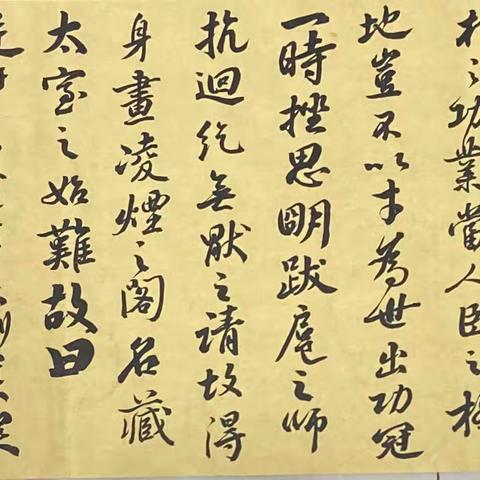 朽之功業當人臣之極
地豈不以才為世出功冠
一時挫思明跋扈之師
抗迴紇無厭之請故得
身畫凌煙之閣名藏
太室之始難故曰